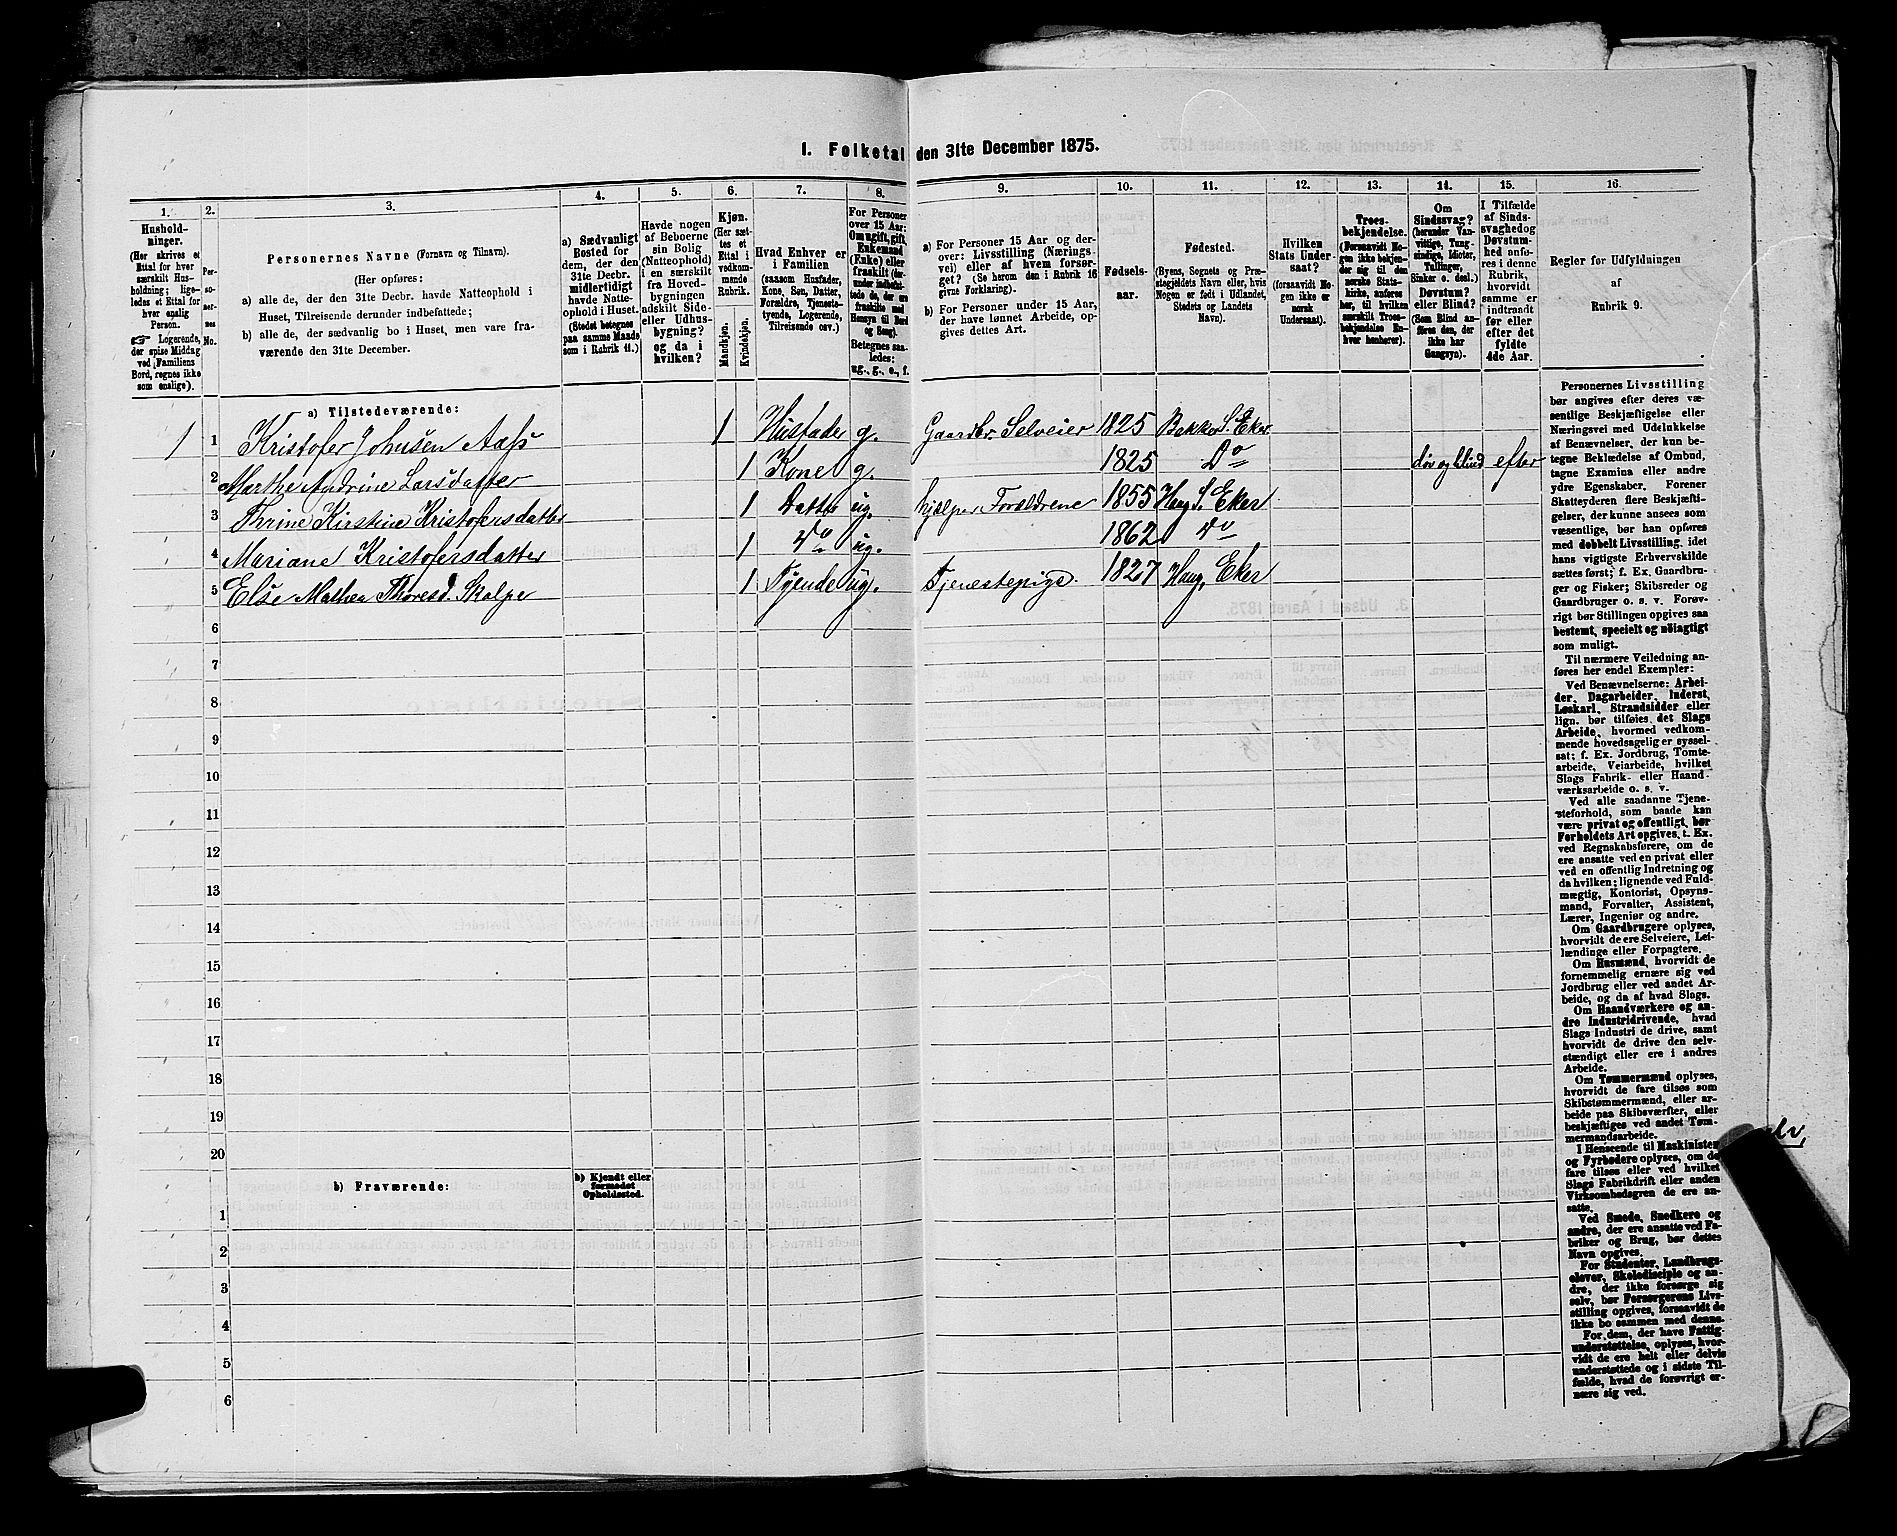 1. Folketal den 31te December 1875.
1. 2. 3. 4. 5. 6. 7. 8. 9. 10. 11. 12. 13. 14. 15. 16.
Hushold-
ninger.
(Her skrives et
Ettal for hver
særskilt Hus-
holdning; lige-
ledes et Ettal for
hver enslig
Person.
☞ Logerende,
der spise Middag
ved Familiens
Bord, regnes ikke
som enslige).
Per-
so-
ner-
nes
No.
Personernes Navne (Fornavn og Tilnavn).
(Her opføres:
a) alle de, der den 31te Decbr. havde Natteophold i
Huset, Tilreisende derunder indbefattede;
b) alle de, der sædvanlig bo i Huset, men vare fra-
værende den 31te December.
a) Sædvanligt
Bosted for
dem, der den
31te Decbr.
midlertidigt
havde Natte-
ophold i Huset.
(Stedet betegnes
paa samme Maade
som i Rubrik 11.)
Havde nogen
af Beboerne
sin Bolig
(Natteophold)
i en særskilt
fra Hoved-
bygningen
adskilt Side-
eller Udhus-
bygning?
og da i
hvilken?
Kjøn.
(Her sæt-
tes et
Ettal i
vedkom-
mende
Rubrik.
Mandkjøn.
Kvindekjøn.
Hvad Enhver er
i Familien
(saasom Husfader,
Kone, Søn, Datter,
Forældre, Tjeneste-
tyende, Logerende,
Tilreisende osv.)
For Personer
over 15 Aar:
Om ugift, gift,
Enkemand
(Enke) eller
fraskilt (der-
under indbefat-
tede de, der ere
fraskilte med
Hensyn til Bord
og Seng).
Betegnes saa-
ledes:
ug., g., e., f.
a) For Personer 15 Aar og der-
over: Livsstilling (Nærings-
vei) eller af hvem forsør-
get? (Se herom den i Rubrik 16
givne Forklaring).
b) For Personer under 15 Aar,
der have lønnet Arbeide, op-
gives dettes Art.
Fødsels-
aar.
Fødested.
(Byens, Sognets og Præ-
stegjeldets Navn eller, hvis
Nogen er født i Udlandet,
Stedets og Landets
Navn).
Hvilken
Stats Under-
saat?
(forsaavidt No-
gen ikke er
norsk
Undersaat).
Troes-
bekjendelse.
(Forsaavidt No-
gen ikke bekjen-
der sig til den
norske Stats-
kirke, anføres
her, til hvilken
særskilt Troes-
bekjendelse En-
hver henhører).
Om
Sindssvag?
(herunder Van-
vittige, Tung-
sindige, Idioter,
Tullinger,
Sinker o. desl.)
Døvstum?
eller Blind?
(Som Blind an-
føres den, der
ikke har
Gangsyn).
I Tilfælde
af Sinds-
svaghed og
Døvstum-
hed anfø-
res i denne
Rubrik,
hvorvidt
samme er
indtraadt
før eller
efter det
fyldte
4de Aar.
Regler for Udfyldningen
af
Rubrik 9.
a) Tilstedeværende:
1 1 Kristofer Johnsen Aass 1 Husfader g. Gaardbr. Selveier 1825 Bakke S. Eker
2 Marthe Andrine Larsdatter 1 Kone g. 1825 Do døv og blind efter
3 Thrine Kirstine Kristofersdatter 1 Datter ug. hjælper Forældrene 1855 Haug S. Eker
4 Mariane Kristofersdatter 1 Do ug. 1862 Do
5 Else Mathea Thoresd. Skalpe 1 Tyende ug. Tjenestepige 1827 Haug, Eker
6
7
8
9
10
11
12
13
14
15
16
17
18
19
20
b) Fraværende:
b) Kjendt eller
formodet
Opholdssted.
1
2
3
4
5
6
Personernes Livsstilling
bør angives efter deres væ-
sentlige Beskjæftigelse eller
Næringsvei med Udelukkelse
af Benævnelser, der kun be-
tegne Beklædelse af Ombud,
tagne Examina eller andre
ydre Egenskaber. Forener
Skatteyderen flere Beskjæfti-
gelser, der kunne ansees som
væsentlige, bør han opføres
med dobbelt Livsstilling, idet
hans vigtigste Erhvervskilde
sættes først; f. Ex. Gaardbru-
ger og Fisker; Skibsreder og
Gaardbruger o. s. v. Forøv-
rigt bør Stillingen opgives saa
bestemt, specielt og nøiagtigt
som muligt.
Til nærmere Veiledning an-
føres her endel Exempler:
Ved Benævnelserne: Arbei-
der, Dagarbeider, Inderst,
Løskarl, Strandsidder eller
lign. bør tilføies det Slags
Arbeide, hvormed vedkom-
mende hovedsagelig er syssel-
sat; f. Ex. Jordbrug, Tomte-
arbeide, Veiarbeide, hvilket
Slags Fabrik- eller Haand-
værksarbeide o. s. v.
Ved alle saadanne Tjene-
steforhold, som baade kan
være privat og offentligt, bør
Forholdets Art opgives, t. Ex.
ved Regnskabsførere, om de
ere ansatte ved en privat eller
ved en offentlig Indretning og
da hvilken; lignende ved Fuld-
mægtig, Kontorist, Opsyns-
mand, Forvalter, Assistent,
Lærer, Ingeniør og andre.
Om Gaardbrugere oplyses,
hvorvidt de ere Selveiere, Lei-
lændinge eller Forpagtere.
Om Husmænd, hvorvidt de
fornemmelig ernære sig ved
Jordbrug eller ved andet Ar-
beide, og da af hvad Slags.
Om Haandværkere og an-
dre Industridrivende, hvad
Slags Industri de drive, samt
hvorvidt de drive den selv-
stændigt eller ere i andres
Arbeide.
Om Tømmermænd oplyses,
hvorvidt de fare tilsøs som
Skibstømmermænd, eller ar-
beide paa Skibsværfter, eller
beskjæftiges ved andet Tøm-
mermandsarbeide.
I Henseende til Maskinister
og Fyrbødere oplyses, om de
fare tilsøs eller ved hvilket
Slags Fabrikdrift eller anden
Virksomhedsgren de ere an-
satte.
Ved Smede, Snedkere og
andre, der ere ansatte ved Fa-
briker og Brug, bør dettes
Navn opgives.
For Studenter, Landbrugs-
elever, Skoledisciple og an-
dre, der ikke forsørge sig
selv, bør Forsørgerens Livs-
stilling opgives, forsaavidt de
ikke bo sammen med denne.
For dem, der have Fattig-
understøttelse, oplyses, hvor-
vidt de ere helt eller delvis
understøttede og i sidste Til-
fælde, hvad de forøvrigt er-
nære sig ved.